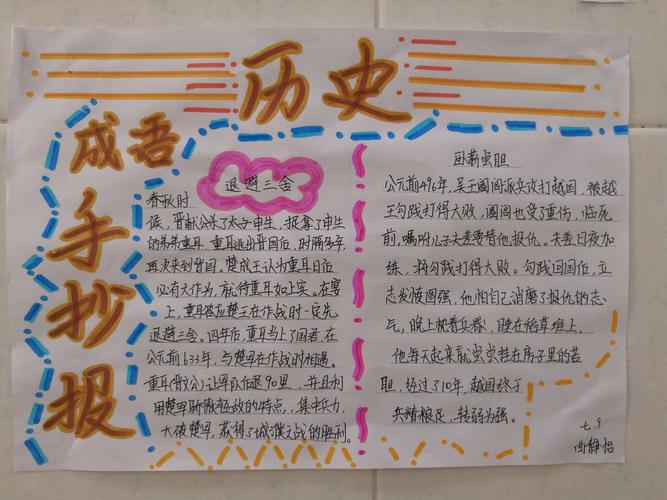 历史
成语
手
抄
报
退避三舍
春秋时
候，晋献公杀了太子申生，捉拿了申生
的弟弟重耳。重耳逃出晋国后，时隔多年，
再次来到晋国。楚成王认为重耳日后
必有大作为，就待重耳如上宾。在宴
上，重耳答应楚王在作战时一定先
退避三舍。四年后，重耳当上了国君。在
公元前633年，与楚军在作战时相遇。
重耳(晋文公)让军队后退90里，并且利
用楚军骄傲轻敌的特点，集中兵力，
大破楚军，获得了城濮之战的胜利。
卧薪尝胆
公元前496年，吴王阖闾派兵攻打越国，被越
王勾践打得大败，阖闾也受了重伤，临死
前，嘱咐儿子夫差要替他报仇。夫差日夜加
练，将勾践打得大败。勾践回国后，立
志发愤图强，他怕自己消磨了报仇的志
气，晚上枕着兵器，睡在稻草堆上，
他每天起来就尝尝挂在房子里的苦
胆，经过了10年，越国终于
兵精粮足，转弱为强。
七.9
曲静怡